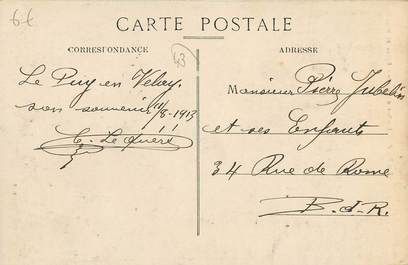 6€
CARTE POSTALE
CORRESPONDANCE
43
ADRESSE
Le Puy en Velay.
son souvenir 11/8-1913
Monsieur Pierre Jubelin
et ses Enfants
34 Rue de Rome
B.-d-R.